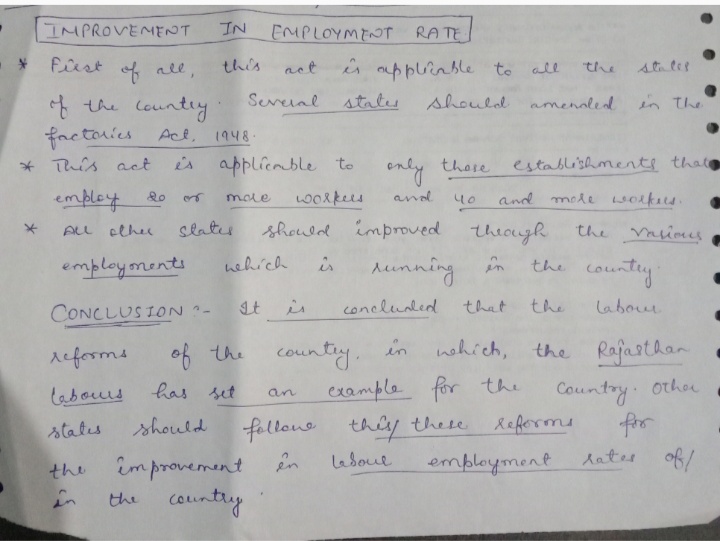 IMPROVEMENT IN EMPLOYMENT RATE
* First of all, this act is applicable to all the states
of the country. Several states should amended in the
factories Act, 1948.
* This act is applicable to only those establishments that
employ 20 or more workers and 40 and more workers.
* All other states should improved through the various
employments which is running in the country.
CONCLUSION :- It is concluded that the labour
reforms of the country, in which, the Rajasthan
labours has set an example for the country. Other
states should follow this/ these reforms for
the improvement in labour employment rates of/
in the country.